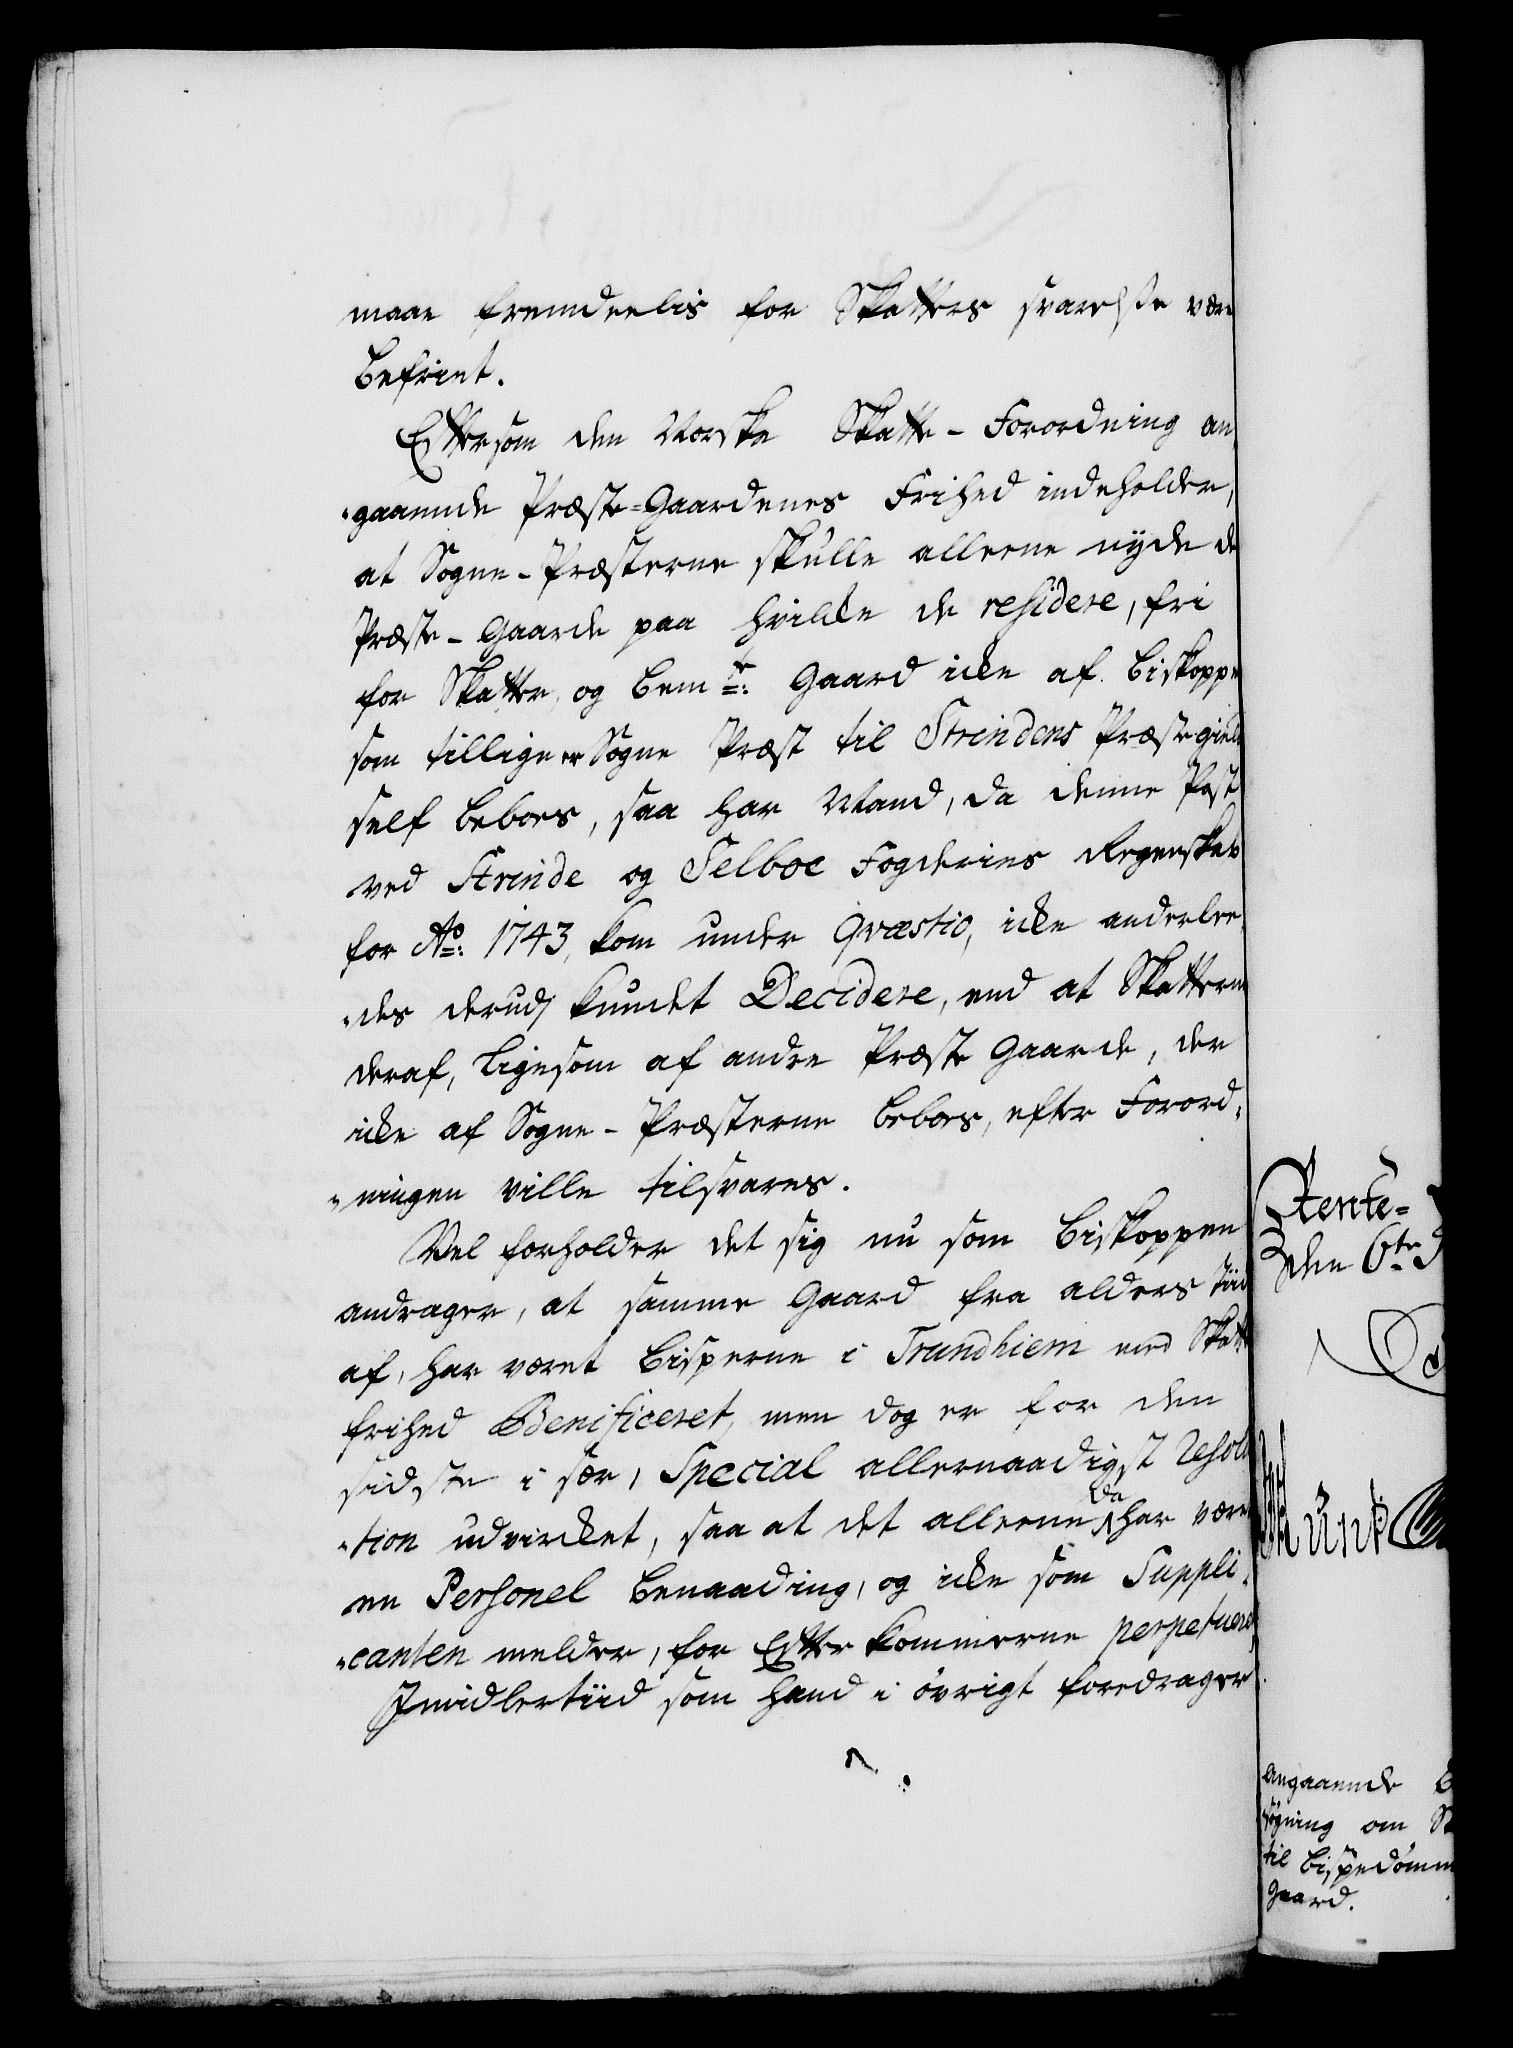 maae fremdeelis for Skatters svarelse være
befriet.
Eftersom den Norske Skatte-Forordning an¬
„gaaende Præste-Gaardenes Frihed indeholder,
at Sogne-Præsterne skulle alleene nyde de
Præste-Gaarde paa hvilke de residere, fri
for Skatter, og bemte: Gaard icke af Biskoppen
som tillige er Sogne Præst til Strindens Præstegield
self beboes, saa har Mand, da denne Post
ved Strinde og Selboe Fogderies Regenskab
for Ao: 1743, kom under Qvæstio, icke anderlee
„des derudj kundet Decidere, end at Skatterne
deraf, ligesom af andre Præste Gaarde, der
icke af Sogne-Præsterne beboes, efter Forord¬
„ningen ville tilsvares.
Vel forholder det sig nu som Biskoppen
andrager, at samme Gaard fra alders tiid
af, har været Bisperne i Trundhiem med Skatte
frihed Benificeret, men dog er for den
sidste i sær, Special allernaadigst Resolu
„tion udvircket, saa at det alleene da har været
en Personel benaading, og icke som Suppli¬
„canten melder, for Efterkommerne perpetueret,
Imidlertiid som hand i øvrigt foredrager
Rente=
den 6te
angaaende
søgning om
til Bispedømm
Gaard.